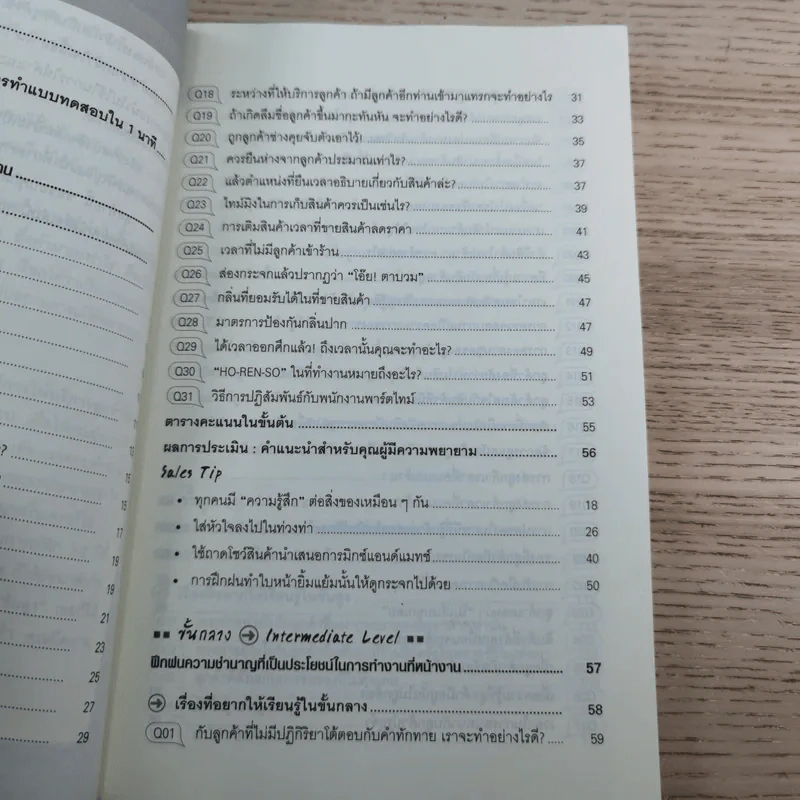 รทำแบบทดสอบใน 1 นาที
15
17
19
19
21
23
25
27
29
Q18 ระหว่างที่ให้บริการลูกค้า ถ้ามีลูกค้าอีกท่านเข้ามาแทรกจะทำอย่างไร 31
Q19 ถ้าเกิดลืมชื่อลูกค้าขึ้นมากะทันหัน จะทำอย่างไรดี? 33
Q20 ถูกลูกค้าช่างคุยจับตัวเอาไว้! 35
Q21 ควรยืนห่างจากลูกค้าประมาณเท่าไร? 37
Q22 แล้วตำแหน่งที่ยืนเวลาอธิบายเกี่ยวกับสินค้าล่ะ? 37
Q23 ไทม์มิงในการเก็บสินค้าควรเป็นเช่นไร? 39
Q24 การเติมสินค้าเวลาที่ขายสินค้าลดราคา 41
Q25 เวลาที่ไม่มีลูกค้าเข้าร้าน 43
Q26 ส่องกระจกแล้วปรากฏว่า "โอ๊ย! ตาบวม" 45
Q27 กลิ่นที่ยอมรับได้ในที่ขายสินค้า 47
Q28 มาตรการป้องกันกลิ่นปาก 47
Q29 ได้เวลาออกศึกแล้ว! ถึงเวลานั้นคุณจะทำอะไร? 49
Q30 "HO-REN-SO" ในที่ทำงานหมายถึงอะไร? 51
Q31 วิธีการปฏิสัมพันธ์กับพนักงานพาร์ตไทม์ 53
ตารางคะแนนในขั้นต้น 55
ผลการประเมิน : คำแนะนำสำหรับคุณผู้มีความพยายาม 56
Sales Tip
• ทุกคนมี "ความรู้สึก" ต่อสิ่งของเหมือน ๆ กัน 18
• ใส่หัวใจลงไปในท่วงท่า 26
• ใช้ถาดโชว์สินค้านำเสนอการมิกซ์แอนด์แมทช์ 40
• การฝึกฝนทำใบหน้ายิ้มแย้มนั้นให้ดูกระจกไปด้วย 50
ขั้นกลาง → Intermediate Level
ฝึกฝนความชำนาญที่เป็นประโยชน์ในการทำงานที่หน้างาน 57
→ เรื่องที่อยากให้เรียนรู้ในขั้นกลาง 58
Q01 กับลูกค้าที่ไม่มีปฏิกิริยาโต้ตอบกับคำทักทาย เราจะทำอย่างไรดี? 59